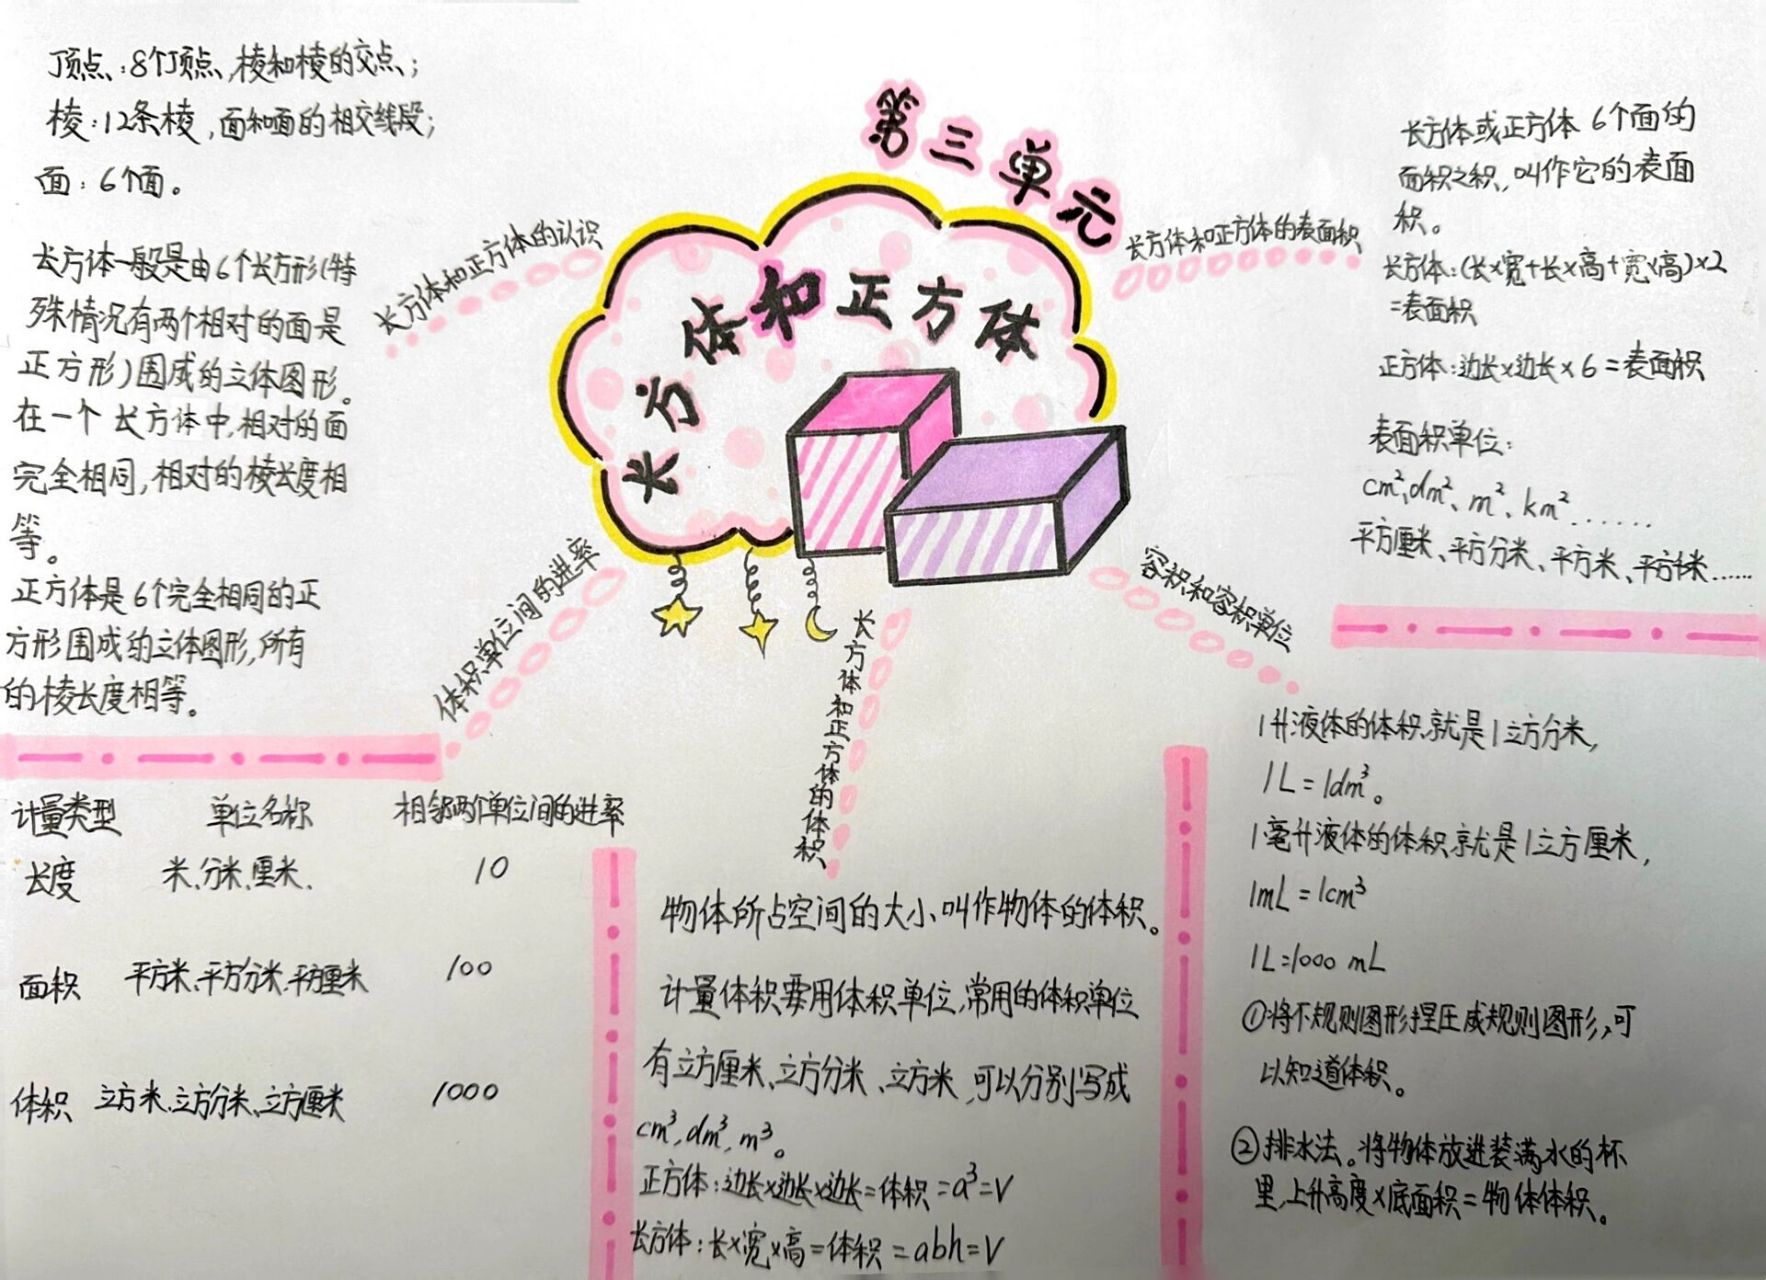 第三单元
长方体和正方体
长方体和正方体的认识
顶点:8个顶点,棱和棱的交点;
棱:12条棱,面和面的相交线段;
面:6个面。
长方体一般是由6个长方形(特
殊情况有两个相对的面是
正方形)围成的立体图形。
在一个长方体中,相对的面
完全相同,相对的棱长度相
等。
正方体是6个完全相同的正
方形围成的立体图形,所有
的棱长度相等。
长方体和正方体的表面积
长方体或正方体6个面的
面积之积,叫作它的表面
积。
长方体:(长×宽+长×高+宽×高)×2
=表面积
正方体:边长×边长×6=表面积
表面积单位:
cm²、dm²、m²、km²......
平方厘米、平方分米、平方米、平方千米......
体积单位间的进率
计量类型 单位名称 相邻两个单位间的进率
长度 米、分米、厘米. 10
面积 平方米、平方分米、平方厘米 100
体积 立方米、立方分米、立方厘米 1000
长方体和正方体的体积
物体所占空间的大小叫作物体的体积。
计量体积要用体积单位,常用的体积单位
有立方厘米、立方分米、立方米,可以分别写成
cm³,dm³,m³。
正方体:边长×边长×边长=体积=a³=V
长方体:长×宽×高=体积=abh=V
容积和容积单位
1升液体的体积就是1立方分米,
1L=1dm³。
1毫升液体的体积就是1立方厘米,
1mL=1cm³
1L=1000mL
①将不规则图形捏压成规则图形,可
以知道体积。
②排水法。将物体放进装满水的杯
里,上升高度×底面积=物体体积。